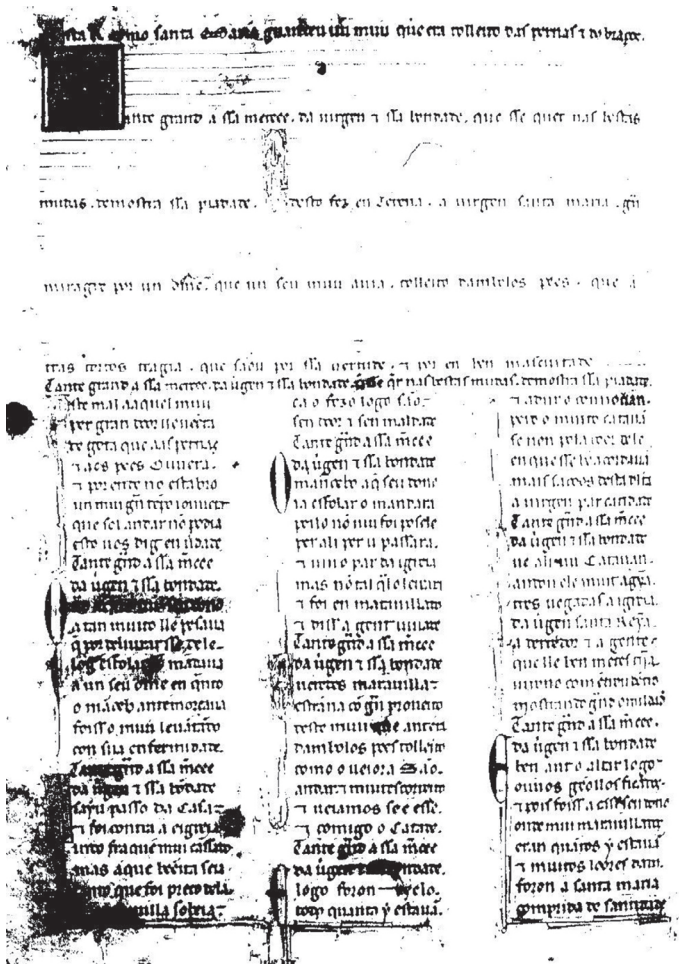 santa Maria guareceu un muu que era tolleito das pernas ⁊ do braços.
ante grand a ssa mercee. da uirgen ⁊ ssa bondade. que sse quer nas bestas
mudas. demostra ssa piadade. desto fez en Terena. a uirgen santa maria. gñ
miragre por un õme. que un seu muu auia. tolleito dambolos pees. que a
tras tortos tragia. que saõu por ssa uertude. ⁊ por en ben mascuitade
Tante grand a ssa mercee. da uigen ⁊ ssa bondade. que qr nas bestas mudas. demostra ssa piadade.
ste mal a aquel muu
per gran door lle uẽera
de gota que aas pernas
⁊ aos pees ouuera.
⁊ por ende no estabro
un mui gñ tẽpo iouuera
que sol andar nõ podia
esto uos dig en udade
Tante gñd a ssa mcee
da uigen ⁊ ssa bondade.
a tan muito lle pesaua
q̃ por deliurar sse dele.
log esfolar o mãdaua
a un seu õme en q̃nto
o mãceb. ante moreaua
foiss o muu leuãtãdo
con sua enfermidade.
Tante gñd a ssa mcee
da uigen ⁊ ssa bõdade
sayu passo da casa
⁊ foi contra a eigreia
indo fraque mui cassado
mas aque beeita seia
que foi preto dela
ca o fezo logo são.
sen door ⁊ sen maldade
Tante gñd a ssa mcee
da uigen ⁊ ssa bondade
mancebo aq̃ seu dono
ia esfolar o mandara
peilo nõ uiu foi posele
per ali per u passara.
⁊ uiu o par da igreia
mas nõ tal q̃l o leixara
⁊ foi en marauillado
⁊ diss a gent uuiade
Tante gñd a ssa mcee
da uigen ⁊ ssa bondade
ueeredes marauilla
estrãia cõ gñ proueito
deste muu que antera
dambolos pees tolleito
como o ueiora são.
andar ⁊ muit escorreito
⁊ ueiamos se é esse.
⁊ comigo o catade.
Tante gñd a ssa mcee
da uigen ⁊ ssa bondade.
logo foron veelo.
todos quantos y estauã.
⁊ adur o connoscian.
pero o muito catauã
se non pola coor dele
en que sse ben acordauã
mais sacoos desta dulta
a uirgen par caridade
Tante gñd a ssa mcee
da uigen ⁊ ssa bondade
ue ali uu catauan.
andou ele muit agỹa.
tres uegadas a igreia
da uigen santa Reỹa.
a derredor ⁊ a gente.
que lle ben mẽtes tijna
uiron o com ẽtrou dẽtro
mostrando gñd omildade
Tante gñd a ssa mcee.
da uigen ⁊ ssa bondade
ben ant o altar logo.
ouuos gẽollos ficados
⁊ pois foiss a ca sseu dono
onde mui marauillados
eran quãtos y estauã
⁊ muitos loores dados
foron a santa maria
comprida de santidade